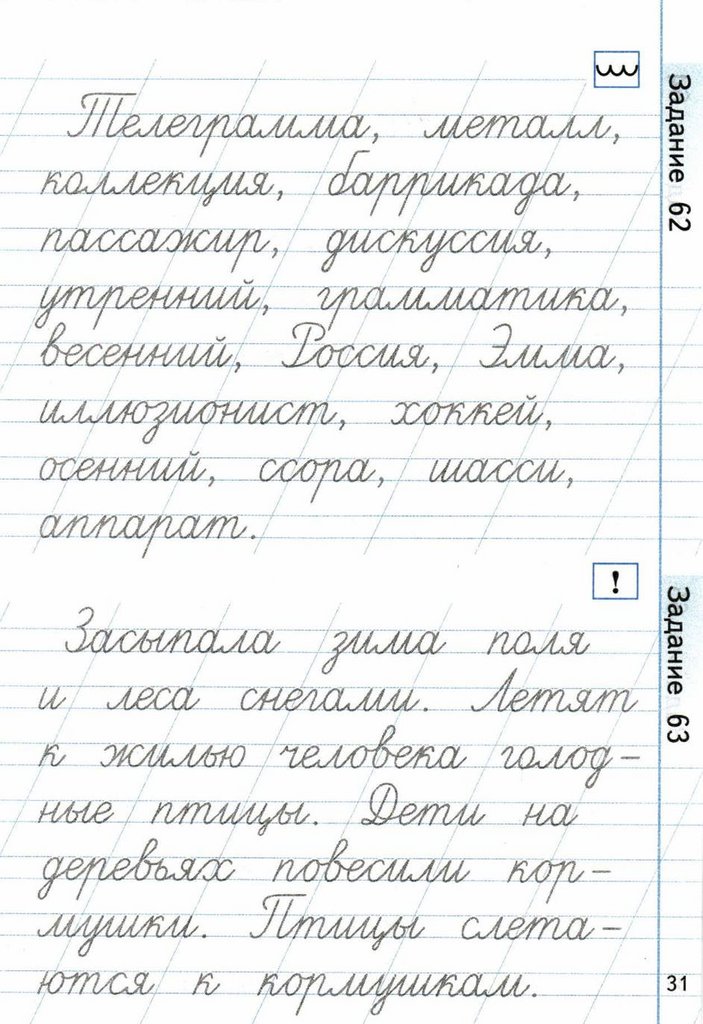 Задание 62
Телеграмма, металл,
коллекция, баррикада,
пассажир, дискуссия,
утренний, грамматика,
весенний, Россия, Эмма,
иллюзионист, хоккей,
осенний, ссора, шасси,
аппарат.
!
Задание 63
Засыпала зима поля
и леса снегами. Летят
к жилью человека голод-
ные птицы. Дети на
деревьях повесили кор-
мушки. Птицы слета-
ются к кормушкам.
31